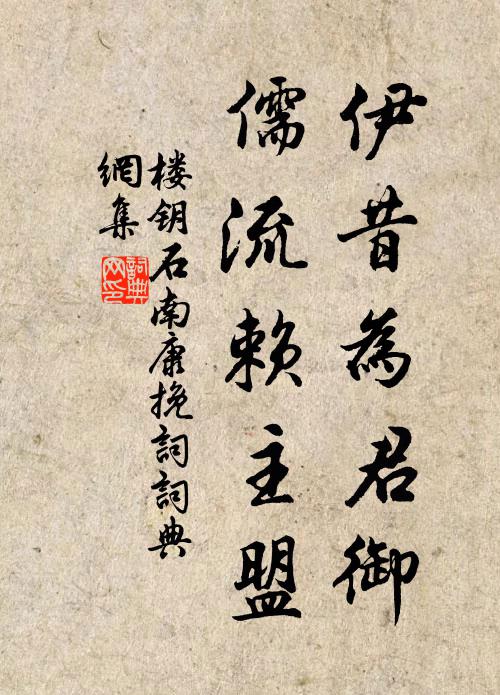 伊昔為君御
儒流賴主盟
楼钥石南康挽詞詞典
網集
詞典網印